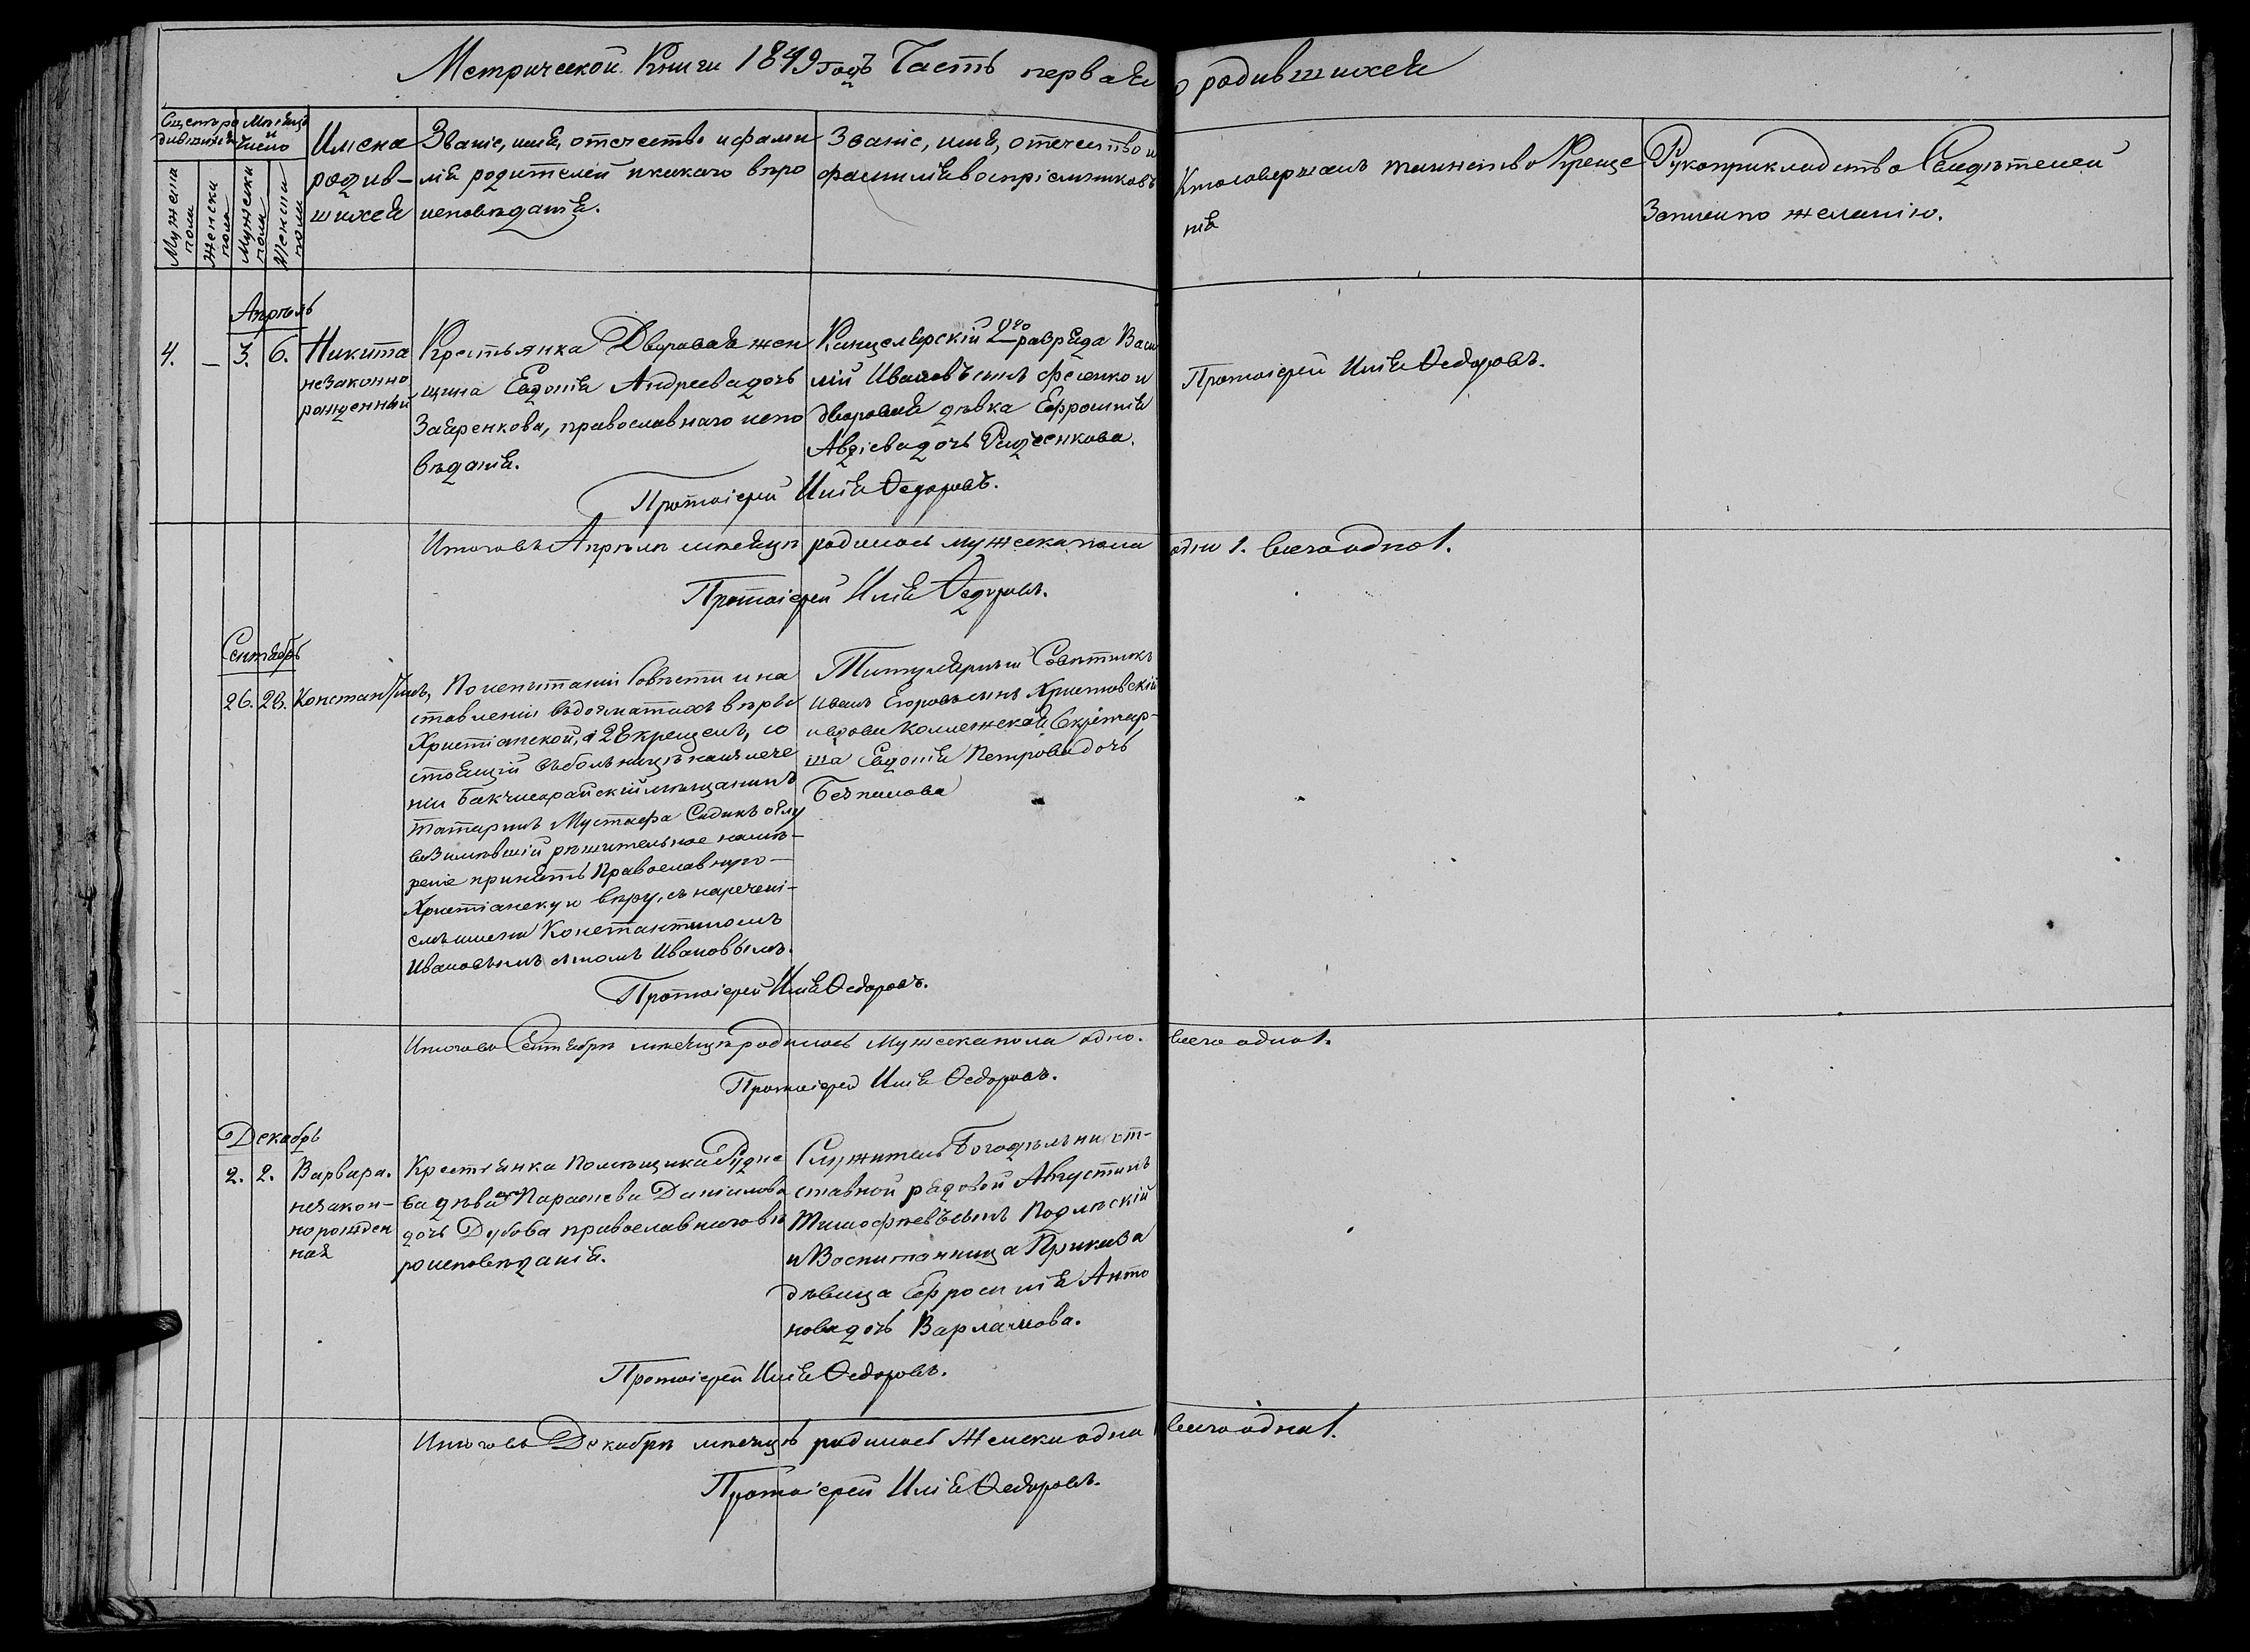 Метрической Книги 1849 годъ Часть первая о родившихся
Счетъ ро
дившихся
Мѣсяцъ
и
число
Мужеска
пола
Женска
пола
Мужеска
пола
Женска
пола
Имена
родив-
шихся
Званіе, имя, отечество и фами
лія родителей и какого вѣро
исповѣданія.
Званіе, имя, отечество и
фамилія воспріемниковъ
Кто совершалъ таинство Креще
нія
Рукоприкладство Свидѣтелей
Записи по желанію.
Апрѣль
4. — 5. 6.
Никита
незаконно
рожденный
Крестьянка Дворовая жен
щина Евдокія Андреева дочь
Заяренкова, православнаго испо
вѣданія.
Канцелярскій 2го разряда Васи
лій Ивановъ сынъ Фесенко и
дворовая дѣвка Ефросинія
Авдіева дочь
Протоіерей Илія Ѳедоровъ.
Протоіерей Илія Ѳедоровъ.
Итого въ Апрѣлѣ мѣсяцѣ родилось мужеска пола одно 1. всего одно 1.
Протоіерей Илія Ѳедоровъ.
Сентябрь
26. 28. Константинъ,
По испытаніи Совѣсти и на
ставленіи въ догматахъ вѣры
Христіанской, а 28 крещенъ, со
стоящій въ больницѣ на излече
ніи Бакчисарайскій мѣщанинъ
татаринъ Мустафа Садыкъ оглу
возимѣвшій рѣшительное намѣ-
реніе принять Православную-
Христіанскую вѣру, съ наречені-
емъ имени Константиномъ
Ивановымъ сыномъ Ивановымъ.
Титулярный Совѣтникъ
Иванъ Егоровъ сынъ Христовскій
и вдова Коллежская Секретар-
ша Евдокія Петрова дочь
Протоіерей Илія Ѳедоровъ.
Итого въ Сентябрѣ мѣсяцѣ родилось Мужеска пола одно. всего одно 1.
Протоіерей Илія Ѳедоровъ.
Декабрь
2. 2. Варвара.
незакон-
норожден
ная
Крестьянка Помѣщика Рудне
ва дѣвка Параскева Даніилова
дочь Дубова православнаго вѣ
роисповѣданія.
Служитель Богадѣльни от-
ставной рядовой Августинъ
Тимофѣевъ сынъ Подлѣскій
и Воспитанница Приказа
дѣвица Ефросинія Анто
нова дочь Варламова.
Протоіерей Илія Ѳедоровъ.
Итого въ Декабрѣ мѣсяцѣ родилось Женска одна всего одна 1.
Протоіерей Илія Ѳедоровъ.